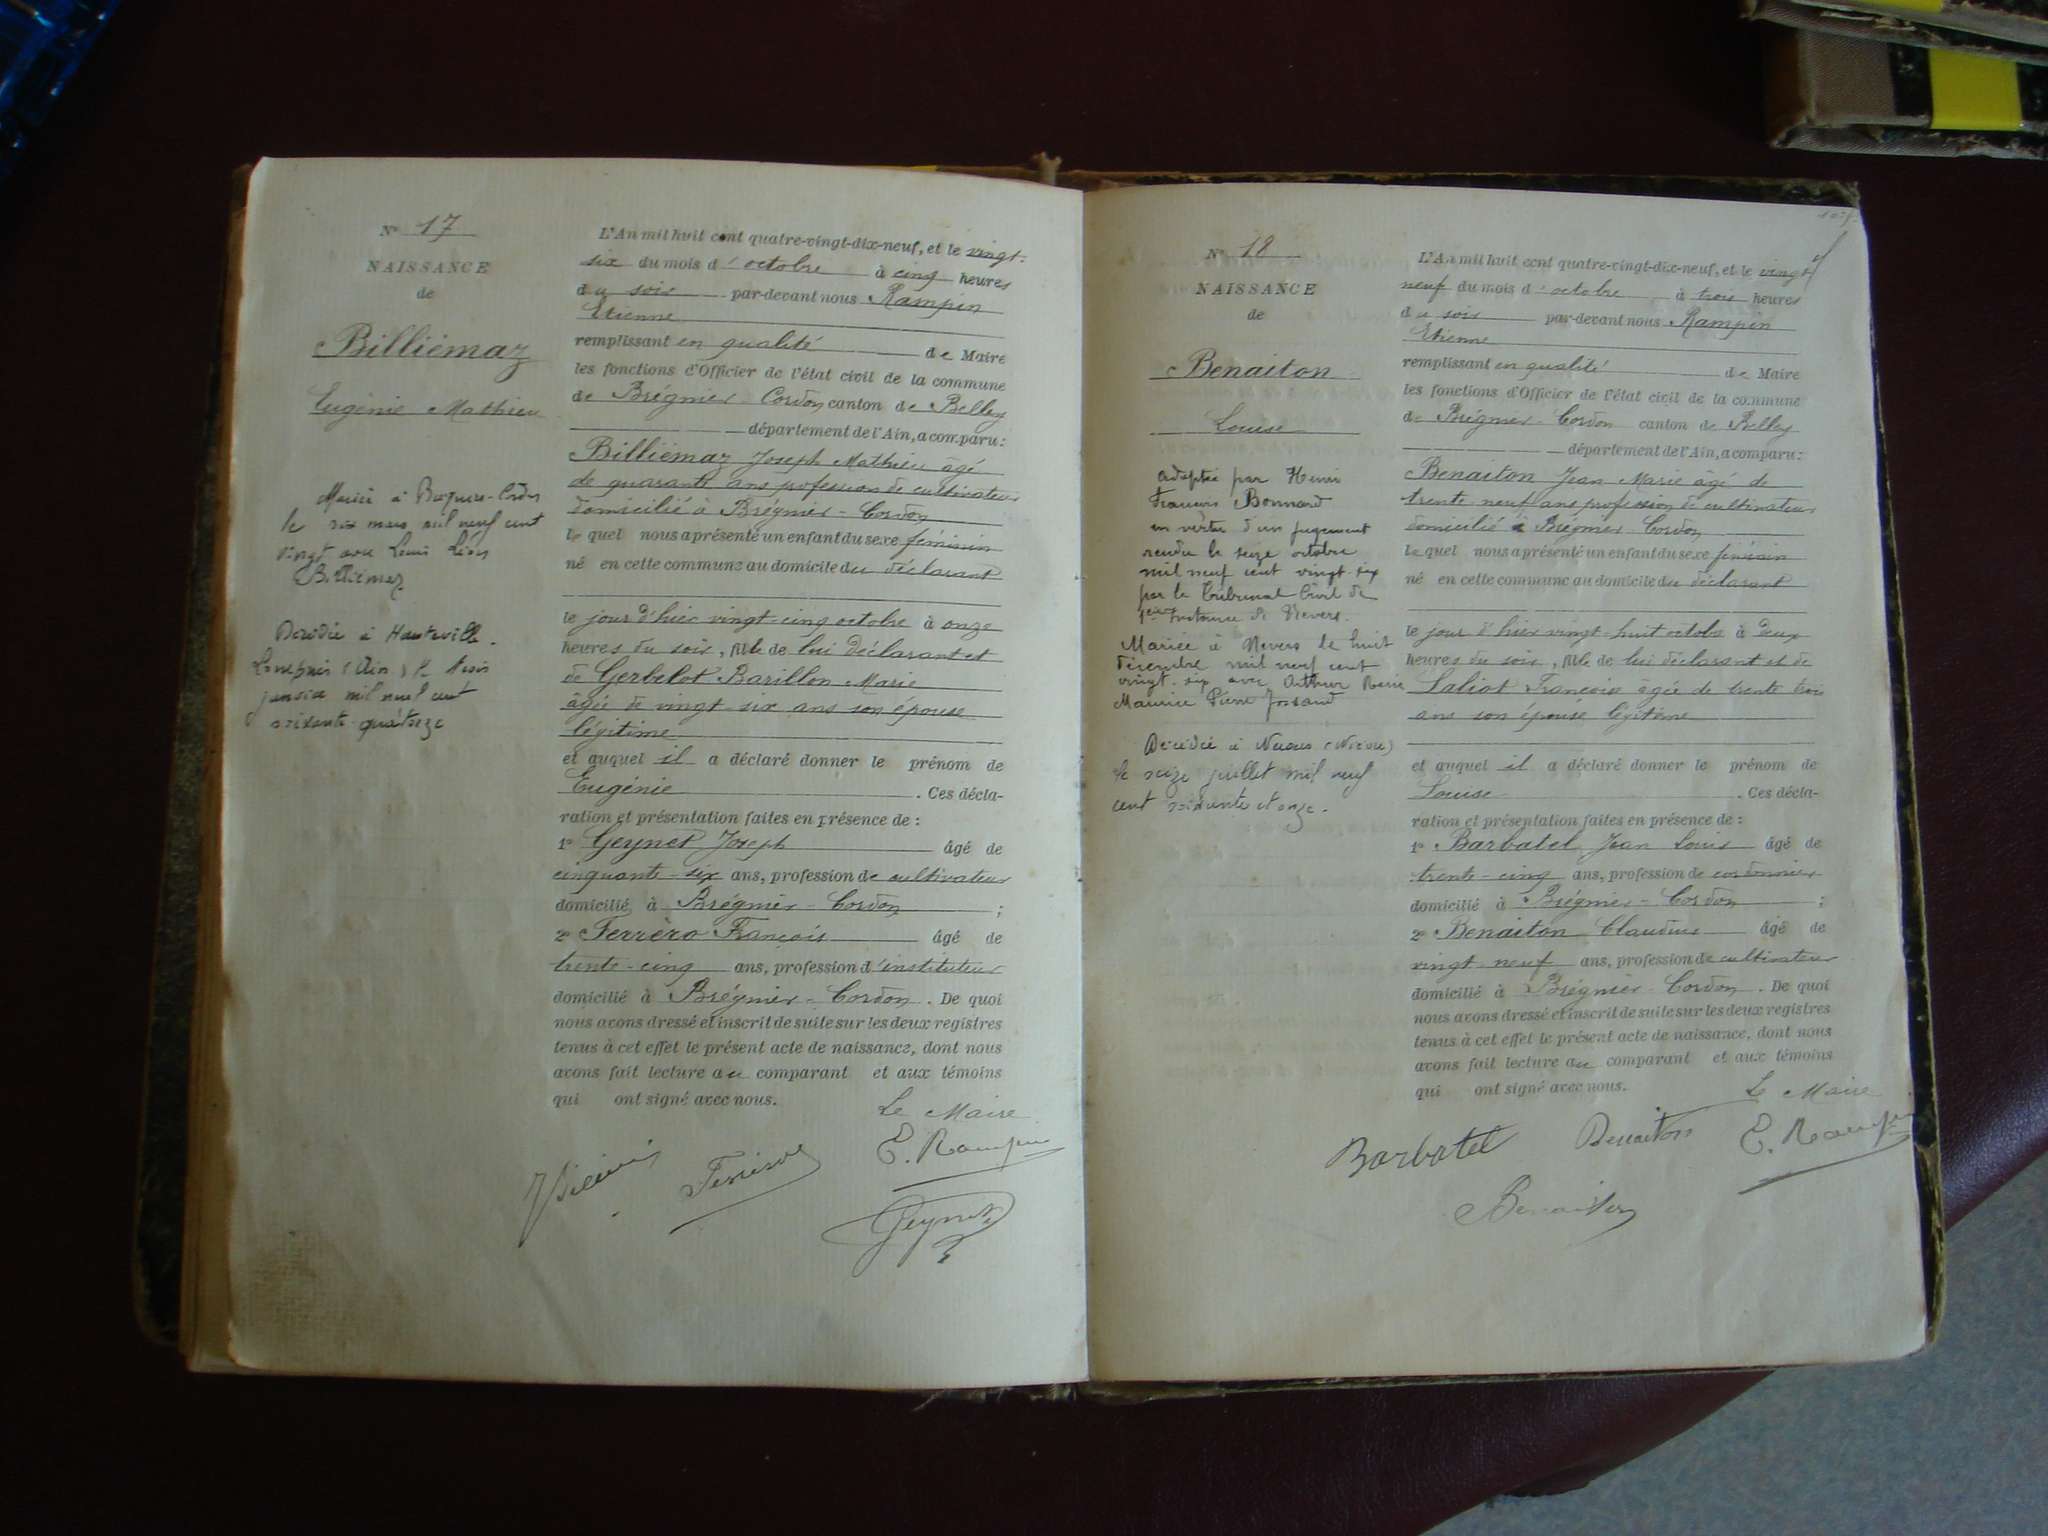 Nº 17
NAISSANCE
de
Billiémaz
Eugénie Mathieu
Mariée à Brégnier-Cordon
le six mars mil neuf cent
vingt avec Louis Léon
Billiémaz
Décédée à Hauteville-
Lompnes (Ain) le trois
janvier mil neuf cent
soixante-quatorze
L'An mil huit cent quatre-vingt-dix-neuf, et le vingt-
six du mois d'octobre à cinq heures
du soir par-devant nous Rampin
Etienne
remplissant en qualité de Maire
les fonctions d'Officier de l'état civil de la commune
de Brégnier-Cordon canton de Belley
département de l'Ain, a comparu :
Billiémaz Joseph Mathieu âgé
de quarante ans profession de cultivateur
domicilié à Brégnier-Cordon
lequel nous a présenté un enfant du sexe féminin
né en cette commune au domicile du déclarant
le jour d'hier vingt-cinq octobre à onze
heures du soir, fille de lui déclarant et
de Gerbelot Barillon Marie
âgée de vingt-six ans son épouse
légitime
et auquel il a déclaré donner le prénom de
Eugénie . Ces décla-
ration et présentation faites en présence de :
1º Geynet Joseph âgé de
cinquante-six ans, profession de cultivateur
domicilié à Brégnier-Cordon ;
2º Ferrèro François âgé de
trente-cinq ans, profession d'instituteur
domicilié à Brégnier-Cordon. De quoi
nous avons dressé et inscrit de suite sur les deux registres
tenus à cet effet le présent acte de naissance, dont nous
avons fait lecture au comparant et aux témoins
qui ont signé avec nous.
Le Maire
E. Rampin
Geynet
Nº 18
NAISSANCE
de
Benaiton
Louise
Adoptée par Henri
François Bonnard
en vertu d'un jugement
rendu le seize octobre
mil neuf cent vingt-six
par le Tribunal Civil de
1ère Instance de Nevers.
Mariée à Nevers le huit
décembre mil neuf cent
vingt-six avec Arthur René
Maurice Pierre
Décédée à Nevers (Nièvre)
le seize juillet mil neuf
cent soixante et onze.
L'An mil huit cent quatre-vingt-dix-neuf, et le vingt
neuf du mois d'octobre à trois heures
du soir par-devant nous Rampin
Etienne
remplissant en qualité de Maire
les fonctions d'Officier de l'état civil de la commune
de Brégnier-Cordon canton de Belley
département de l'Ain, a comparu :
Benaiton Jean Marie âgé de
trente-neuf ans profession de cultivateur
domicilié à Brégnier-Cordon
lequel nous a présenté un enfant du sexe féminin
né en cette commune au domicile du déclarant
le jour d'hier vingt-huit octobre à deux
heures du soir, fille de lui déclarant et de
Laliat François âgée de trente trois
ans son épouse légitime
et auquel il a déclaré donner le prénom de
Louise . Ces décla-
ration et présentation faites en présence de :
1º Barbatel Jean Louis âgé de
trente-cinq ans, profession de cordonnier
domicilié à Brégnier-Cordon ;
2º Benaiton Claudius âgé de
vingt-neuf ans, profession de cultivateur
domicilié à Brégnier-Cordon. De quoi
nous avons dressé et inscrit de suite sur les deux registres
tenus à cet effet le présent acte de naissance, dont nous
avons fait lecture au comparant et aux témoins
qui ont signé avec nous.
Le Maire
Barbatel Benaiton E. Rampin
Benaiton